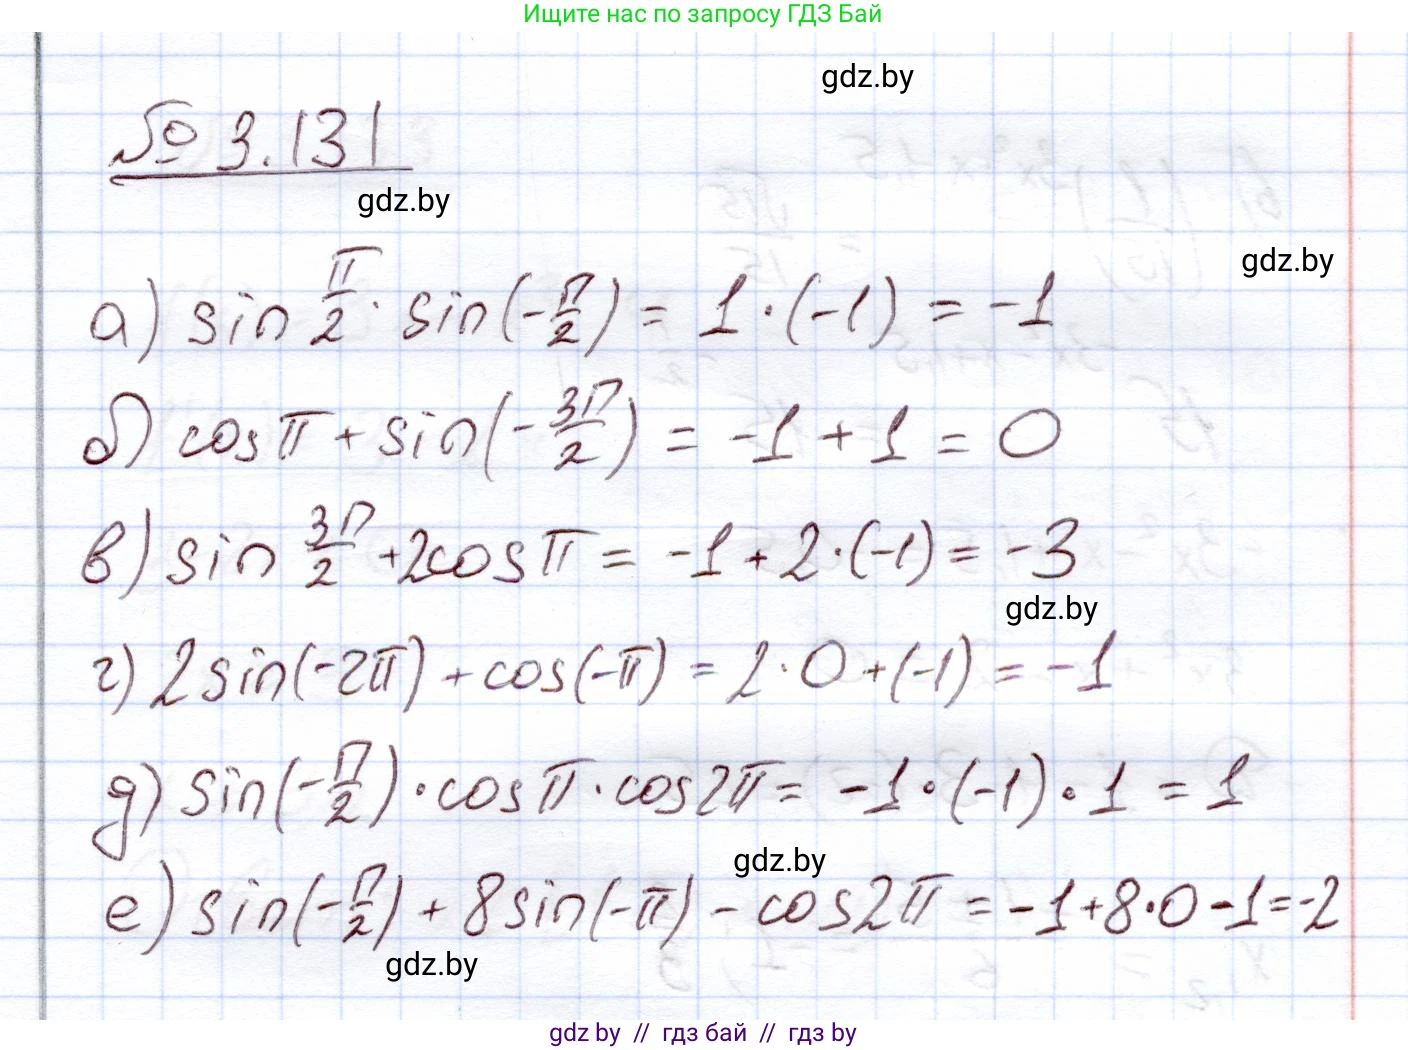 Ищите нас по запросу ГДЗ Бай
gdz.by
№ 3.131
gdz.by
gdz.by
а) sin π/2 · sin(-π/2) = 1 · (-1) = -1
б) cos π + sin(-3π/2) = -1 + 1 = 0
в) sin 3π/2 + 2cos π = -1 + 2 · (-1) = -3
gdz.by
г) 2sin(-2π) + cos(-π) = 2 · 0 + (-1) = -1
д) sin(-π/2) · cos π · cos 2π = -1 · (-1) · 1 = 1
gdz.by
е) sin(-π/2) + 8sin(-π) - cos 2π = -1 + 8 · 0 - 1 = -2
gdz.by
gdz.by // гдз бай // гдз by